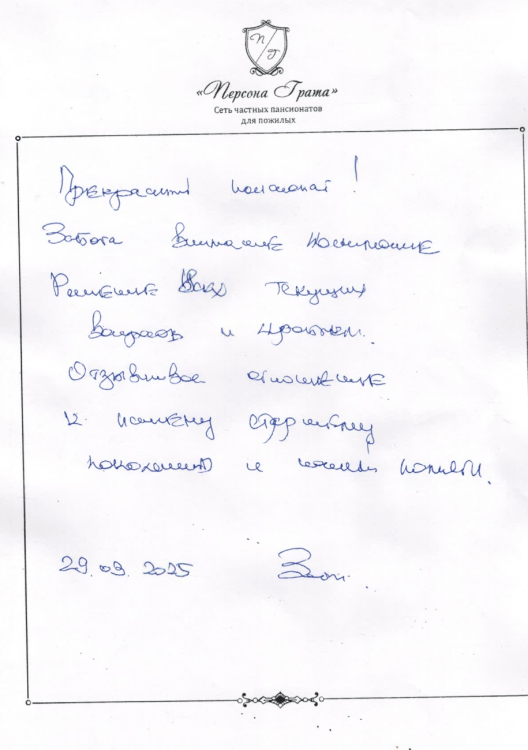 П Г
«Персона Грата»
Сеть частных пансионатов
для пожилых
Прекрасный пансионат!
Забота Внимание Понимание
Решение Всех текущих
вопросов и проблем.
Отзывчивое отношение
к нашему старшему
поколению и
29.09.2025